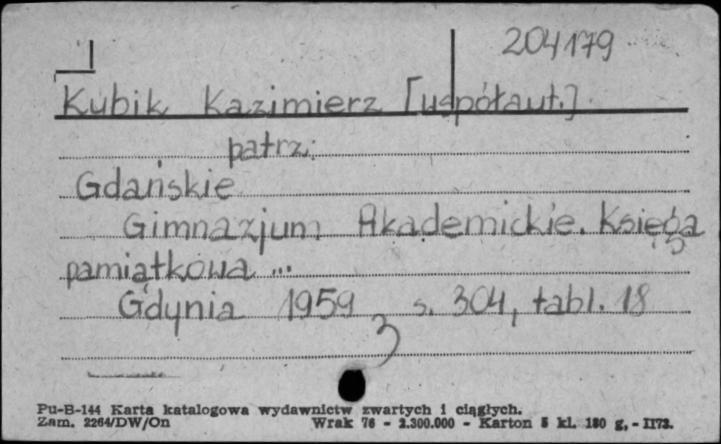 204179
Kubik Kazimierz [współaut.]
patrz:
Gdańskie
Gimnazjum Akademickie. Księga
pamiątkowa ...
Gdynia 1959 s. 304, tabl. 18
3
Pu-B-144 Karta katalogowa wydawnictw zwartych i ciągłych.
Zam. 2264/DW/On Wrak 76 - 2.300.000 - Karton 5 kl. 180 g, - II73.